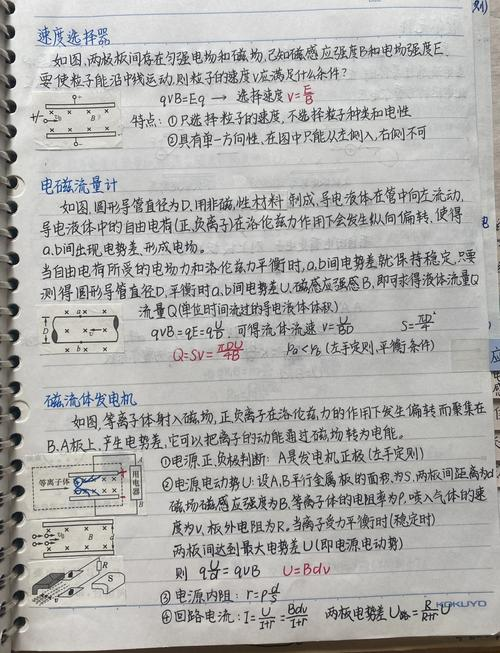 速度选择器
如图,两极板间存在匀强电场和磁场,已知磁感应强度B和电场强度E.
要使粒子能沿中线运动,则粒子的速度v应满足什么条件?
qvB=Eq → 选择速度 v=E/B
特点:①只选择粒子的速度,不选择粒子种类和电性
②具有单一方向性,在图中只能从左侧入,右侧不可
电磁流量计
如图,圆形导管直径为D,用非磁性材料制成,导电液体在管中向左流动,
导电液体中的自由电荷(正、负离子)在洛伦兹力作用下会发生纵向偏转,使得
a.b间出现电势差,形成电场。
当自由电荷所受的电场力和洛伦兹力平衡时,a、b间电势差就保持稳定,只要
测得圆形导管直径D,平衡时a、b间电势差U,磁感应强感B,即可求得液体流量Q
流量Q(单位时间流过的导电液体体积)
qvB=qE=qU/D,可得流体流速 v=U/BD S=πD²/4
Q=SV=πDU/4B φa<φb (左手定则,平衡条件)
磁流体发电机
如图,等离子体射入磁场,正负离子在洛伦兹力的作用下发生偏转而聚集在
B.A板上,产生电势差,它可以把离子的动能通过磁场转为电能。
①电源正、负极判断:A是发电机正极(左手定则)
②电源电动势U:设A、B平行金属板的面积,为S,两板间距离为d
磁场磁感应强度为B,等离子体的电阻率为ρ,喷入气体的速
度为v,板外电阻为R。当离子受力平衡时(稳定时)
两板间达到最大电势差U(即电源电动势)
则 qU/d=qvB U=Bdv
③电源内阻:r=ρd/S
等离子体
用电器
KOKUYO